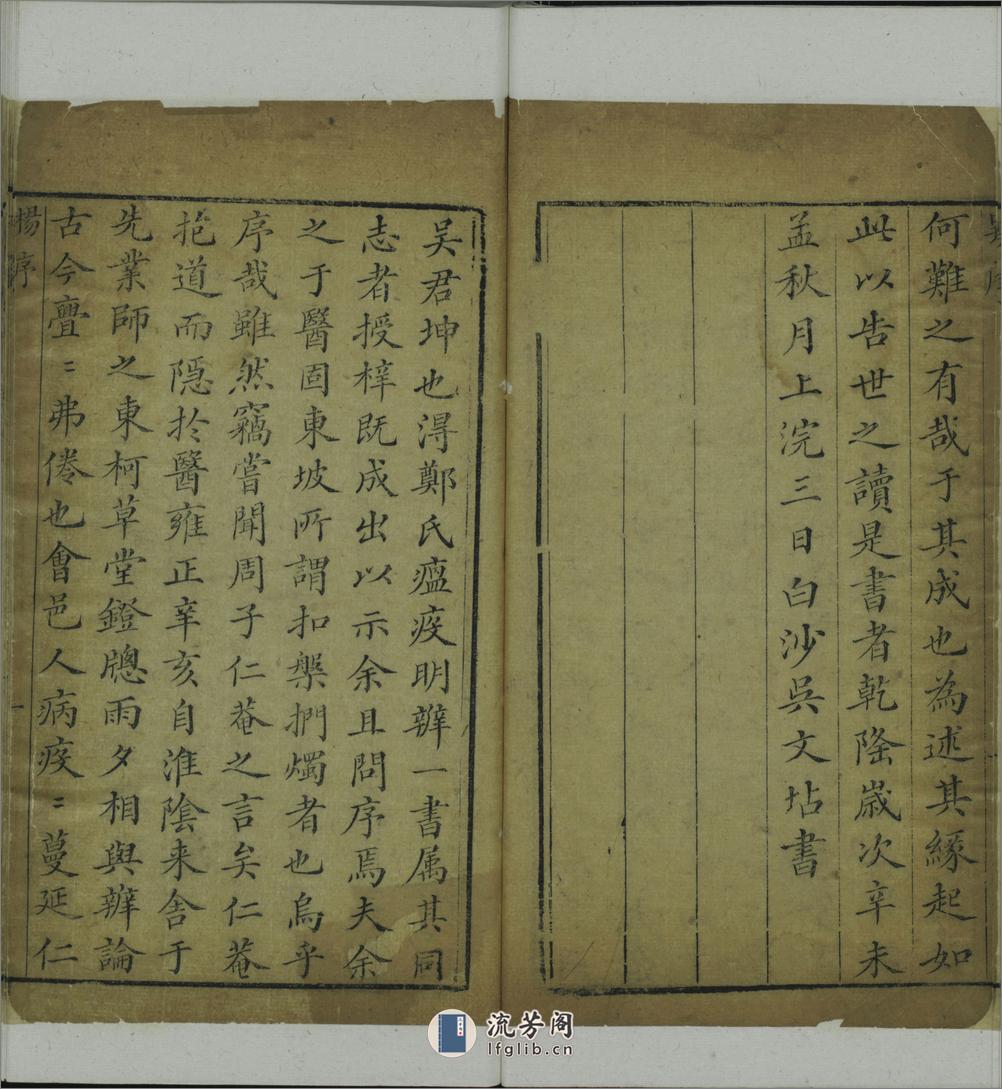 吳序
何難之有哉于其成也為述其緣起如
此以告世之讀是書者乾隆歲次辛未
孟秋月上浣三日白沙吳文坫書
吳君坤也淂鄭氏瘟疫明辨一書属其同
志者授梓既成出以示余且問序焉夫余
之于醫固東坡所謂扣槃捫燭者也烏乎
序哉雖然竊嘗聞周子仁菴之言矣仁菴
抱道而隱扵醫雍正辛亥自淮陰来舍于
先業師之東柯草堂鐙牕雨夕相與辨論
古今亹〻弗倦也會邑人病疫〻蔓延仁
楊序
一
流芳阁
lfglib.cn